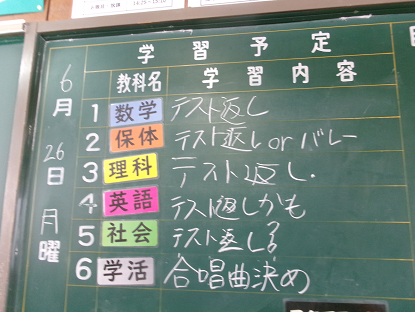 学習予定
教科名 学習内容
6月26日月曜
1 数学 テスト返し
2 保体 テスト返し or バレー
3 理科 テスト返し.
4 英語 テスト返しかも
5 社会 テスト返し?
6 学活 合唱曲決め